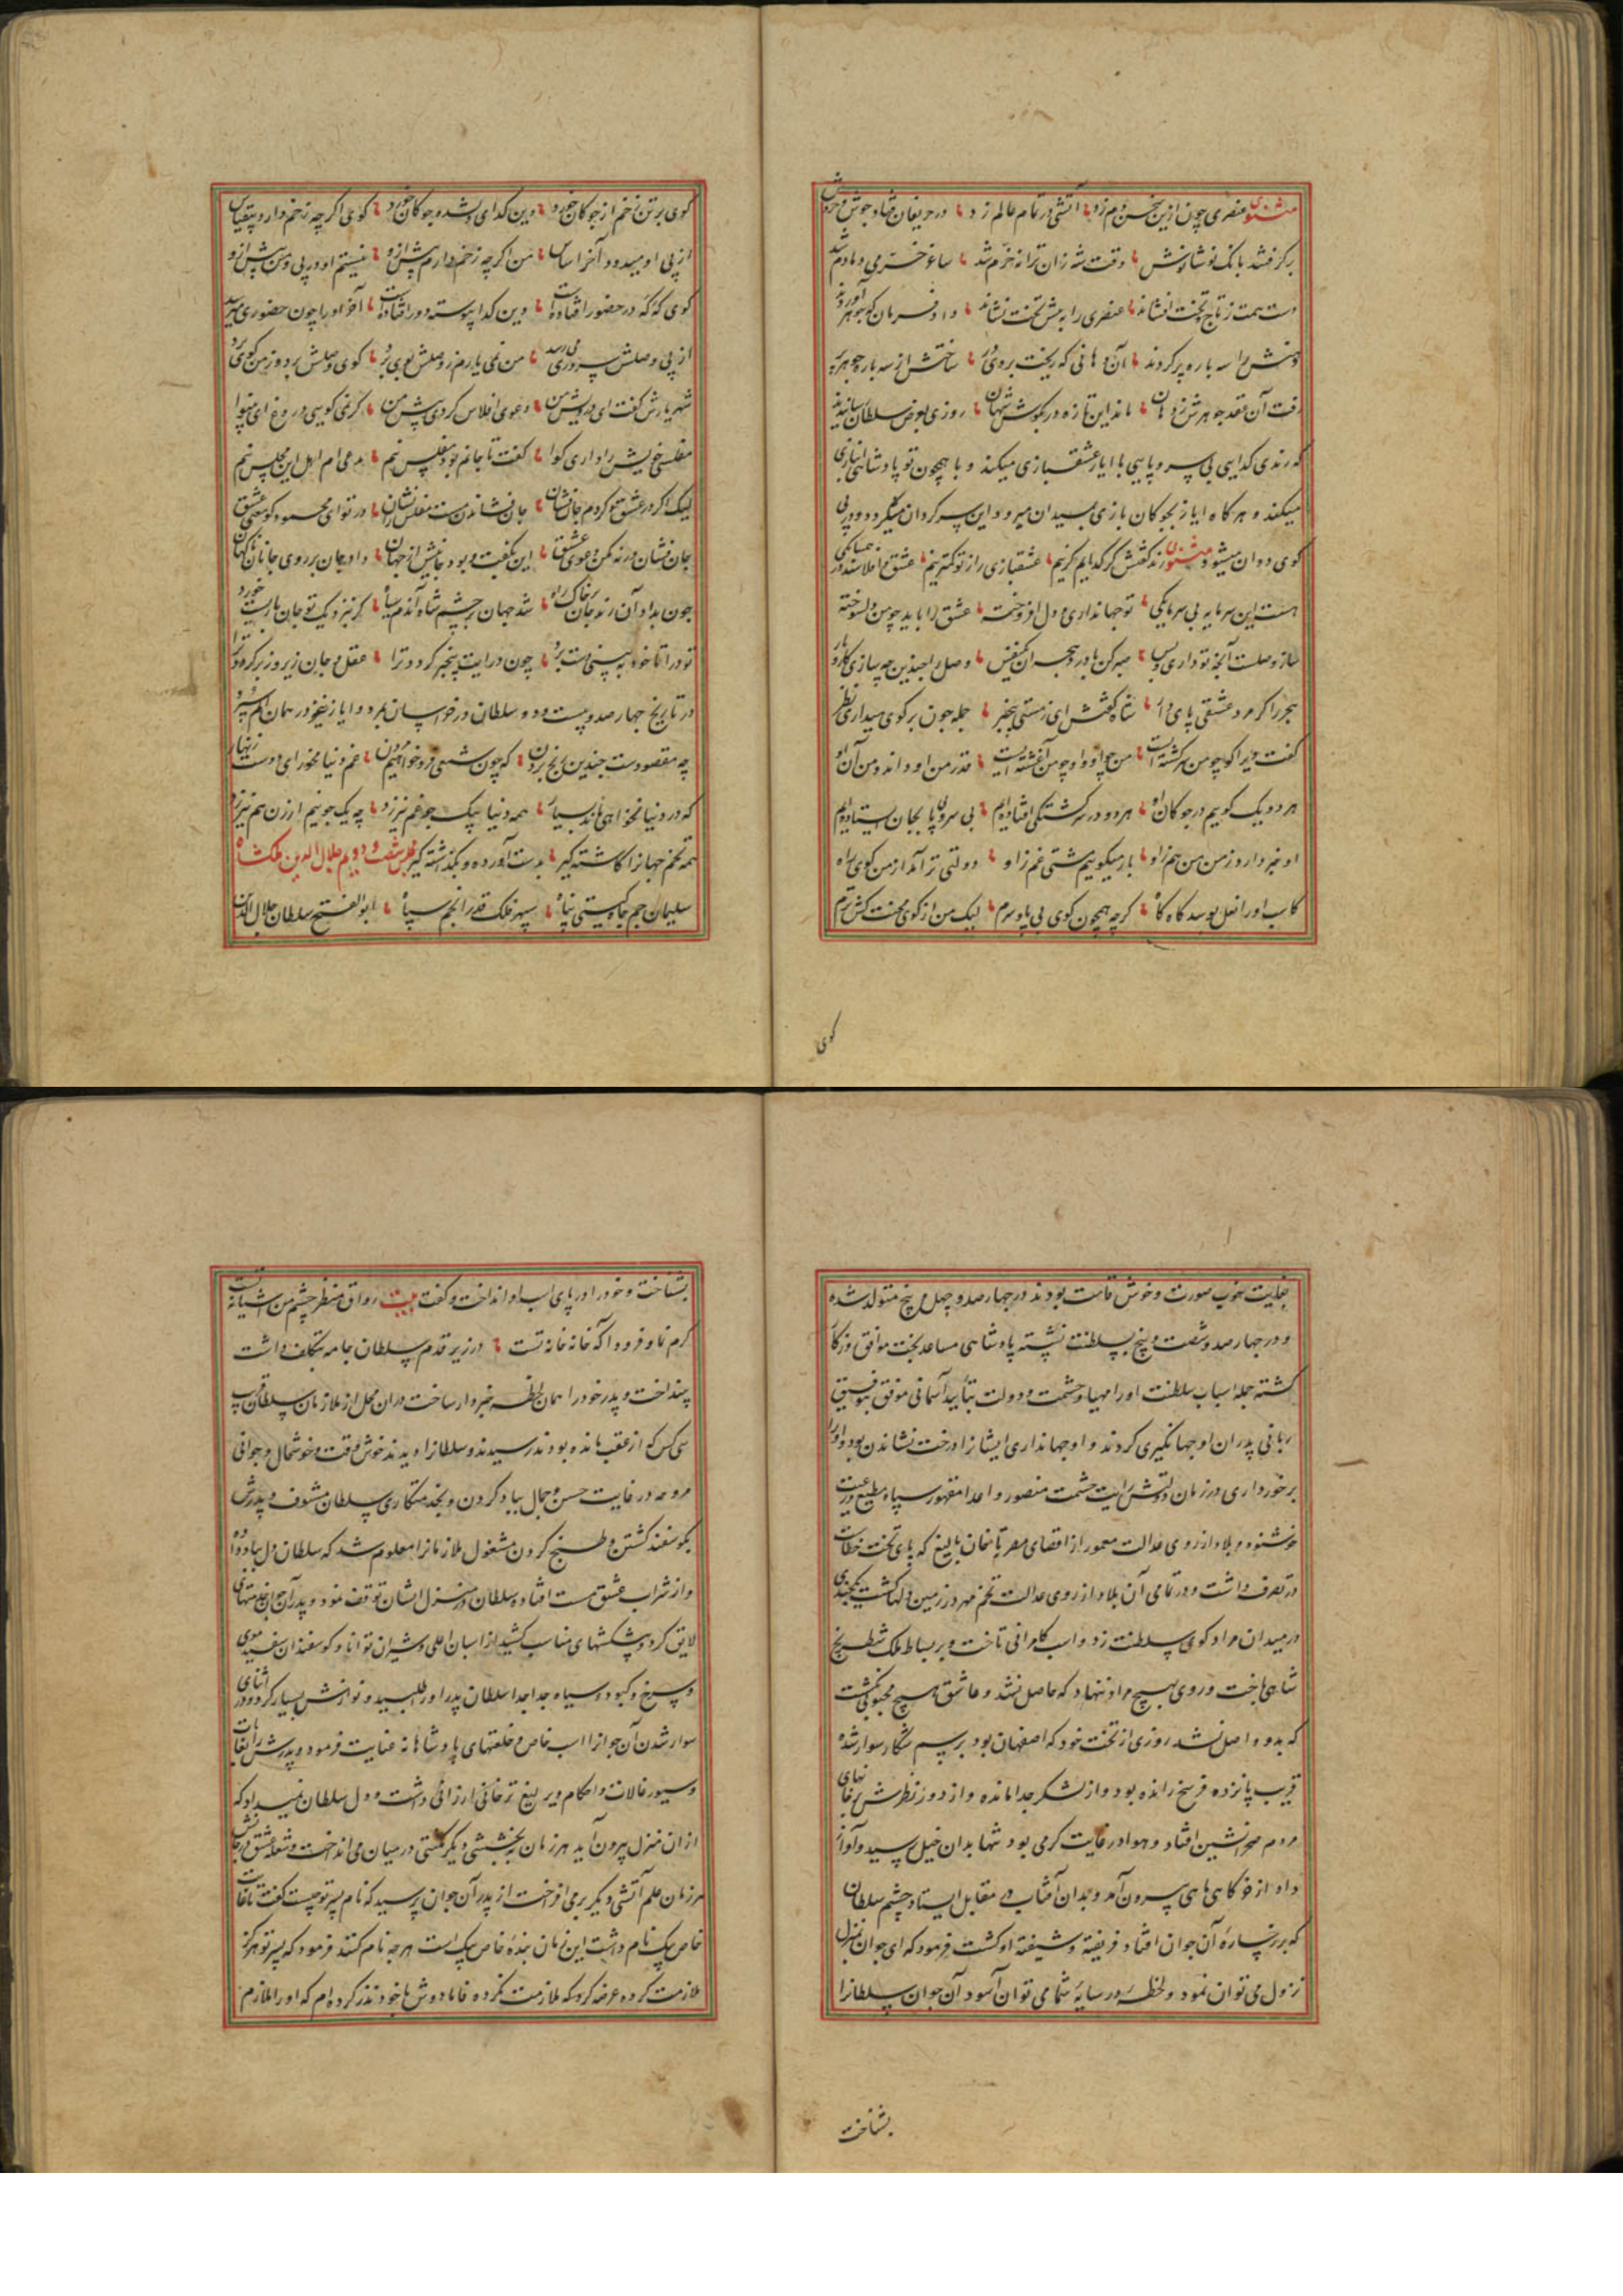 مثنوی عنصری چون ازین سخن دم زد آتشی در تمام عالم زد در حریفان فتاد جوش و خروش
برگرفتند بانگ نوشانوش وقت شه زان ترانه خرم شد ساغر خرمی دمادم شد
دست همت ز تاج و تخت افشاند عنصری را به پیش تخت نشاند داد فرمان که جوهر آوردند
دهنش را سه باره پر کردند آن دهانی که ریخت بروی در ساختش از سه بار جوهر پر
رفت آن نقد جوهرش ز دهان ماند این تازه در بگوش شهان روزی بعرض سلطان رسانیدند
که رندی گدایی بی سر و پایی با ایاز عشقبازی میکند و با همچون تو پادشاهی انبازی
میکند و هرگاه ایاز بچوگان بازی بمیدان میرود این سرگردان میگردد و در پی
گوی دوان میشود مثنوی رند گفتش گر گدایم گر نیم عشقبازی را ز تو کمتر نیم عشق و افلاسند در همسایگی
هست این سرمایه بی سرمایگی تو جهانداری و دل افروخته عشق را باید چو من دلسوخته
ساز وصلست آنچه تو داری و بس صبر کن با درد هجر ان یکنفس وصل را چندین چه سازی کار و بار
هجر را گر مرد عشقی پای دار شاه گفتش ای ز مستی بیخبر جمله چون بر گوی میداری نظر
گفت زیرا گو چو من سرگشته است من چو او و او چو من آغشته است قدر من او داند و من آن او
هر دو یک گوییم در چوگان او هر دو در سرگشتگی افتاده‌ایم بی سر و پا بجان استاده‌ایم
او خبر دارد ز من من هم ازو باز میگوییم مشتی غم ازو دولتی تر آمد از من گوی راه
کاسب او را نعل بوسد گاه گاه گرچه همچون گوی بی پا و سرم لیک من از گوی محنت کش ترم
گوی
گوی بر تن زخم از چوگان خورد وین گدای دلشده بر جان خورد گوی اگرچه زخم دارد بیقیاس
از پی او میدود آخر ایاس من اگرچه زخم دارم بیش ازو نیستم او در پی و من پیش ازو
گوی گه گه در حضور افتاده است وین گدا پیوسته دور افتاده است آخر او را چون حضوری میرسد
از پی وصلش سروری میرسد من نمی یارم ز وصلش بوی برد گوی وصلش برد و از من گوی برد
شهریارش گفت ای درویش من دعوی افلاس کردی پیش من گر نمی گویی دروغ ای بینوا
مفلسی خویش را داری گوا گفت تا جانم بود مفلس نیم مدعی ام اهل این مجلس نیم
لیک اگر در عشق گردم جان فشان جان فشاندن هست مفلس را نشان در تو ای محمود کو معنی عشق
جان فشان ورنه مکن دعوی عشق این بگفت و بود جانش از جهان داد جان بر روی جانان ناگهان
چون بداد آن رند جان بر خاک راه شد جهان بر چشم شاه آندم سیاه گر بنزدیک تو جان بازیست خرد
تو درا تا خود به بینی دست برد چون درآیت بیخبر گردد ترا عقل و جان زیر و زبر گردد ترا
در تاریخ چهارصد و بیست و دو سلطان در خراسان بمرد و ایاز نیز در همان
چه مقصودست چندین رنج بردن که چون شمعی فرو خواهیم مردن غم دنیا مخور ای دوست زنهار
که در دنیا نخواهی ماند بسیار همه دنیا بیک جو غم نیرزد چه یک جو نیم ارزن هم نیرزد
همه تخم جهان را کاشته گیر بدست آورده و بگذشته گیر مجلس شصت و دویم جلال الدین ملکشاه
سلیمان جم جاه گیتی پناه سپهر فلک قدر انجم سپاه ابو الفتح سلطان جلال الدین
بغایت خوب صورت و خوش قامت بودند در چهارصد و چهل و پنج متولد شده
و در چهارصد و شصت و پنج بسلطنت نشسته پادشاهی مساعد بخت موافق روزگار
گشته جمله اسباب سلطنت او را مهیا و حشمت و دولت بتایید آسمانی موفق بتوفیق
ربانی پدران او جهانگیری کردند و او جهانداری ایشان را درخت نشاندن بود و او را
برخورداری در زمان دولتش رایت حشمت منصور و اعدا مقهور سپاه مطیع و رعیت
خوشنود و بلاد از روی عدالت معمور از اقصای مصر تا خان بالیغ که پای تخت خطاست
در تصرف داشت و در تمامی آن بلاد از روی عدالت تخم مهر در زمین دلها کشت بیحدی
در میدان مراد گوی سلطنت زد و اسب کامرانی تاخت و بر بساط ملک شطرنج
شاهی باخت و روی بهیچ مراد ننهاد که حاصل نشد و عاشق هیچ محبوبی نگشت
که بدو واصل نشد روزی از تخت خود که اصفهان بود برسم شکار سوار شده
قریب پانزده فرسخ رانده بود و از لشکر جدا مانده و از دور نظرش بر خانهای
مردم صحرانشین افتاد و هوا در غایت گرمی بود تنها بدان خیل رسید و آواز
داد از خرگاهی ماهی بیرون آمد و بدان آفتاب در مقابل ایستاد چشم سلطان
که بر رخساره آن جوان افتاد فریفته و شیفته او گشت فرمود که ای جوان بمنزل
نزول می توان نمود و لحظه در سایه شما می توان آسود آن جوان سلطان را
بشناخت
بشناخت و خود را در پای اسب او انداخت و گفت بیت رواق منظر چشم من آشیانه تست
کرم نما و فرود آ که خانه خانه تست در زیر قدم سلطان جامه بتکلف داشت
بینداخت و پدر خود را همان لحظه خبردار ساخت در آن محل از ملازمان سلطان قریب
سی کس که از عقب مانده بودند رسیدند و سلطان را دیدند خوش وقت و خوشحال و جوانی
مروحه در غایت حسن و جمال بباد کردن و بخدمتکاری سلطان مشعوف و پدرش
بگوسفند کشتن و طبخ کردن مشغول ملازمان را معلوم شد که سلطان دل بباد داده
و از شراب عشق مست افتاده سلطان در منزل ایشان توقف نمود و پدر آن جوان
لایق کرد و پیشکشهای مناسب کشید از اسبان اعلی و شتران توانا و گوسفندان سفید موی
و سرخ و کبود و سیاه جدا جدا سلطان پدر او را طلبید و نوازش بسیار کرد و در اثنای
سوار شدن آن جوان را اسب خاص و خلعتهای پادشاهانه عنایت فرمود و پدرش را انعامات
و سیورغالات و احکام و یرلیغ ترخانی ارزانی داشت و دل سلطان نمیداد که
از ان منزل بیرون آید هر زمان بخششی و دیگر مکثی در میان می انداخت و شعله عشق در جانش
هر زمان علم آتشی دیگر برمی افراخت از پدر آن جوان پرسید که نام پسر تو چیست گفت تا غایت
خاص بیک نام داشت این زمان بنده خاص بیک است هر چه نام کنند فرمود که پسر تو هرگز
ملازمت کرده عرضه کرد که ملازمت نکرده فاما دوش با خود نذر کرده ام که او را ملازم